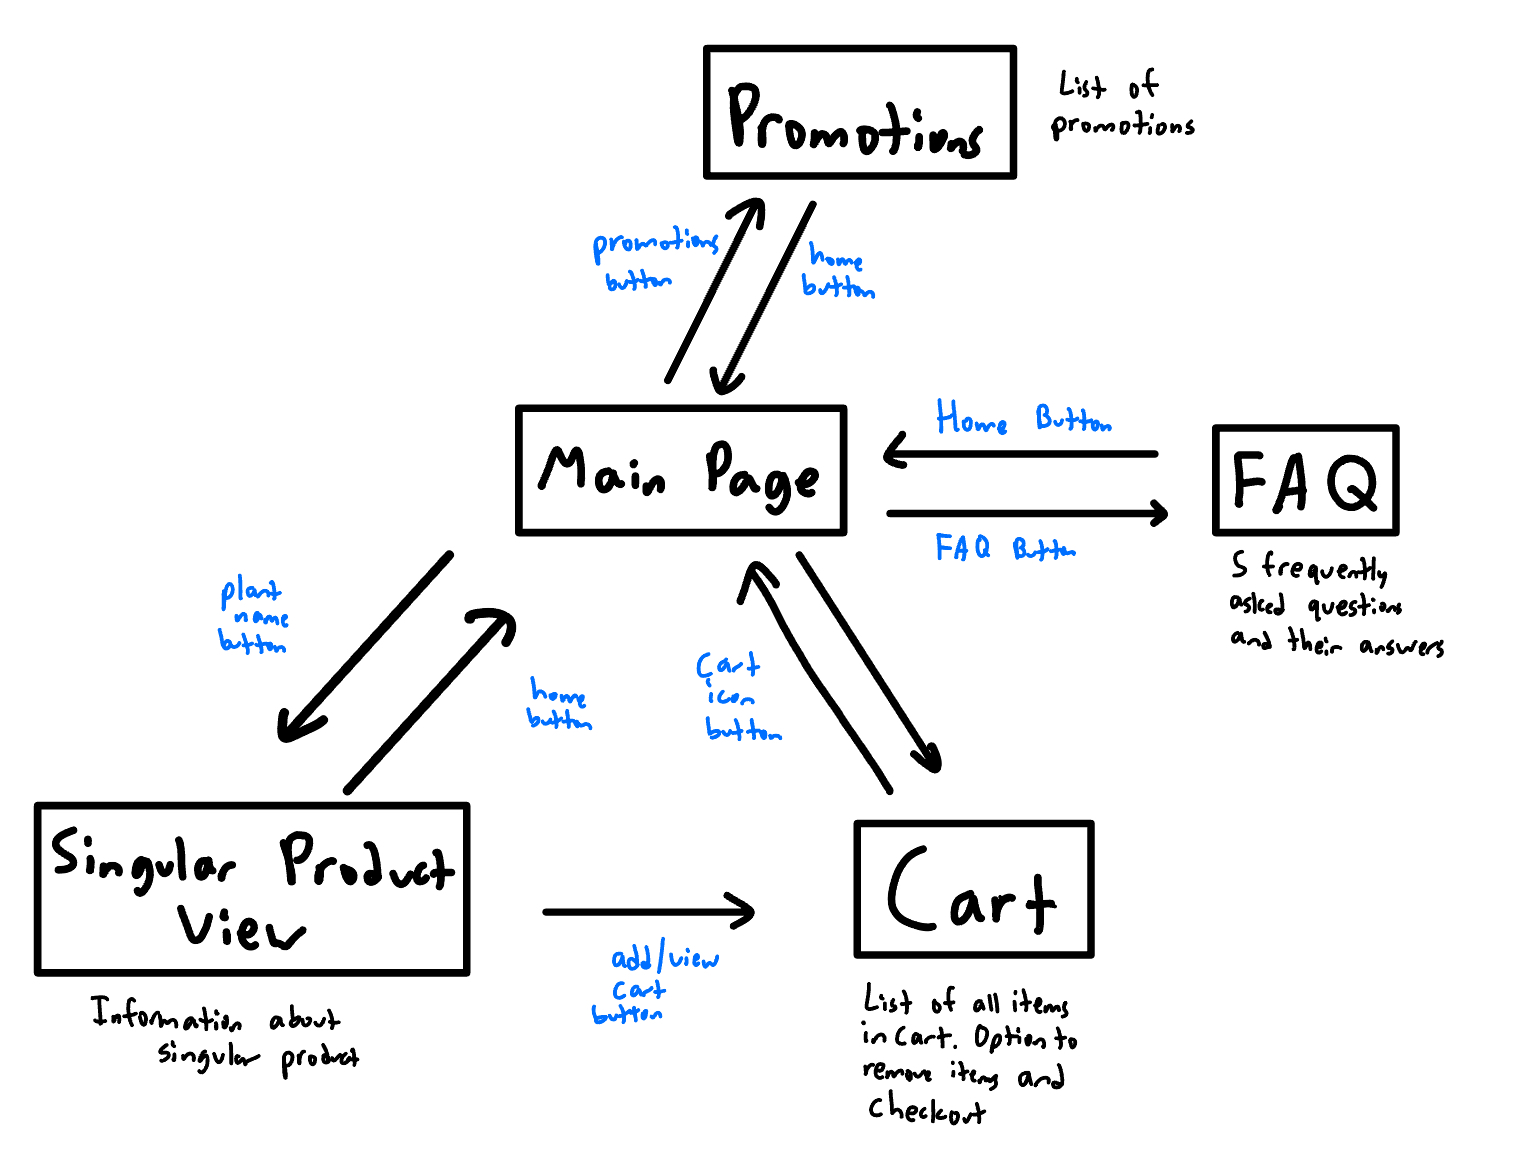 Promotions
List of
promotions
promotions
button
home
button
Main Page
Home Button
FAQ Button
FAQ
5 frequently
asked questions
and their answers
plant
name
button
home
button
Cart
icon
button
Singular Product
View
Information about
singular product
add/view
cart
button
Cart
List of all items
in cart. Option to
remove items and
checkout